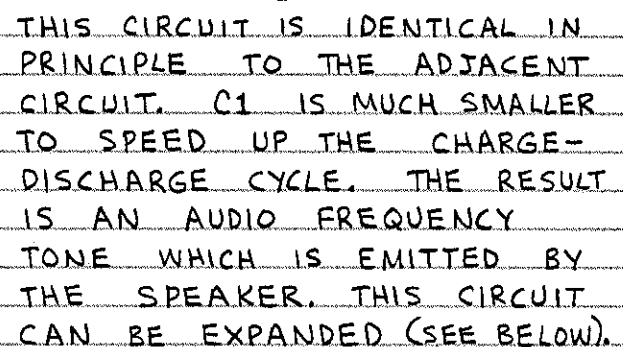 THIS CIRCUIT IS IDENTICAL IN
PRINCIPLE TO THE ADJACENT
CIRCUIT. C1 IS MUCH SMALLER
TO SPEED UP THE CHARGE-
DISCHARGE CYCLE. THE RESULT
IS AN AUDIO FREQUENCY
TONE WHICH IS EMITTED BY
THE SPEAKER. THIS CIRCUIT
CAN BE EXPANDED (SEE BELOW).